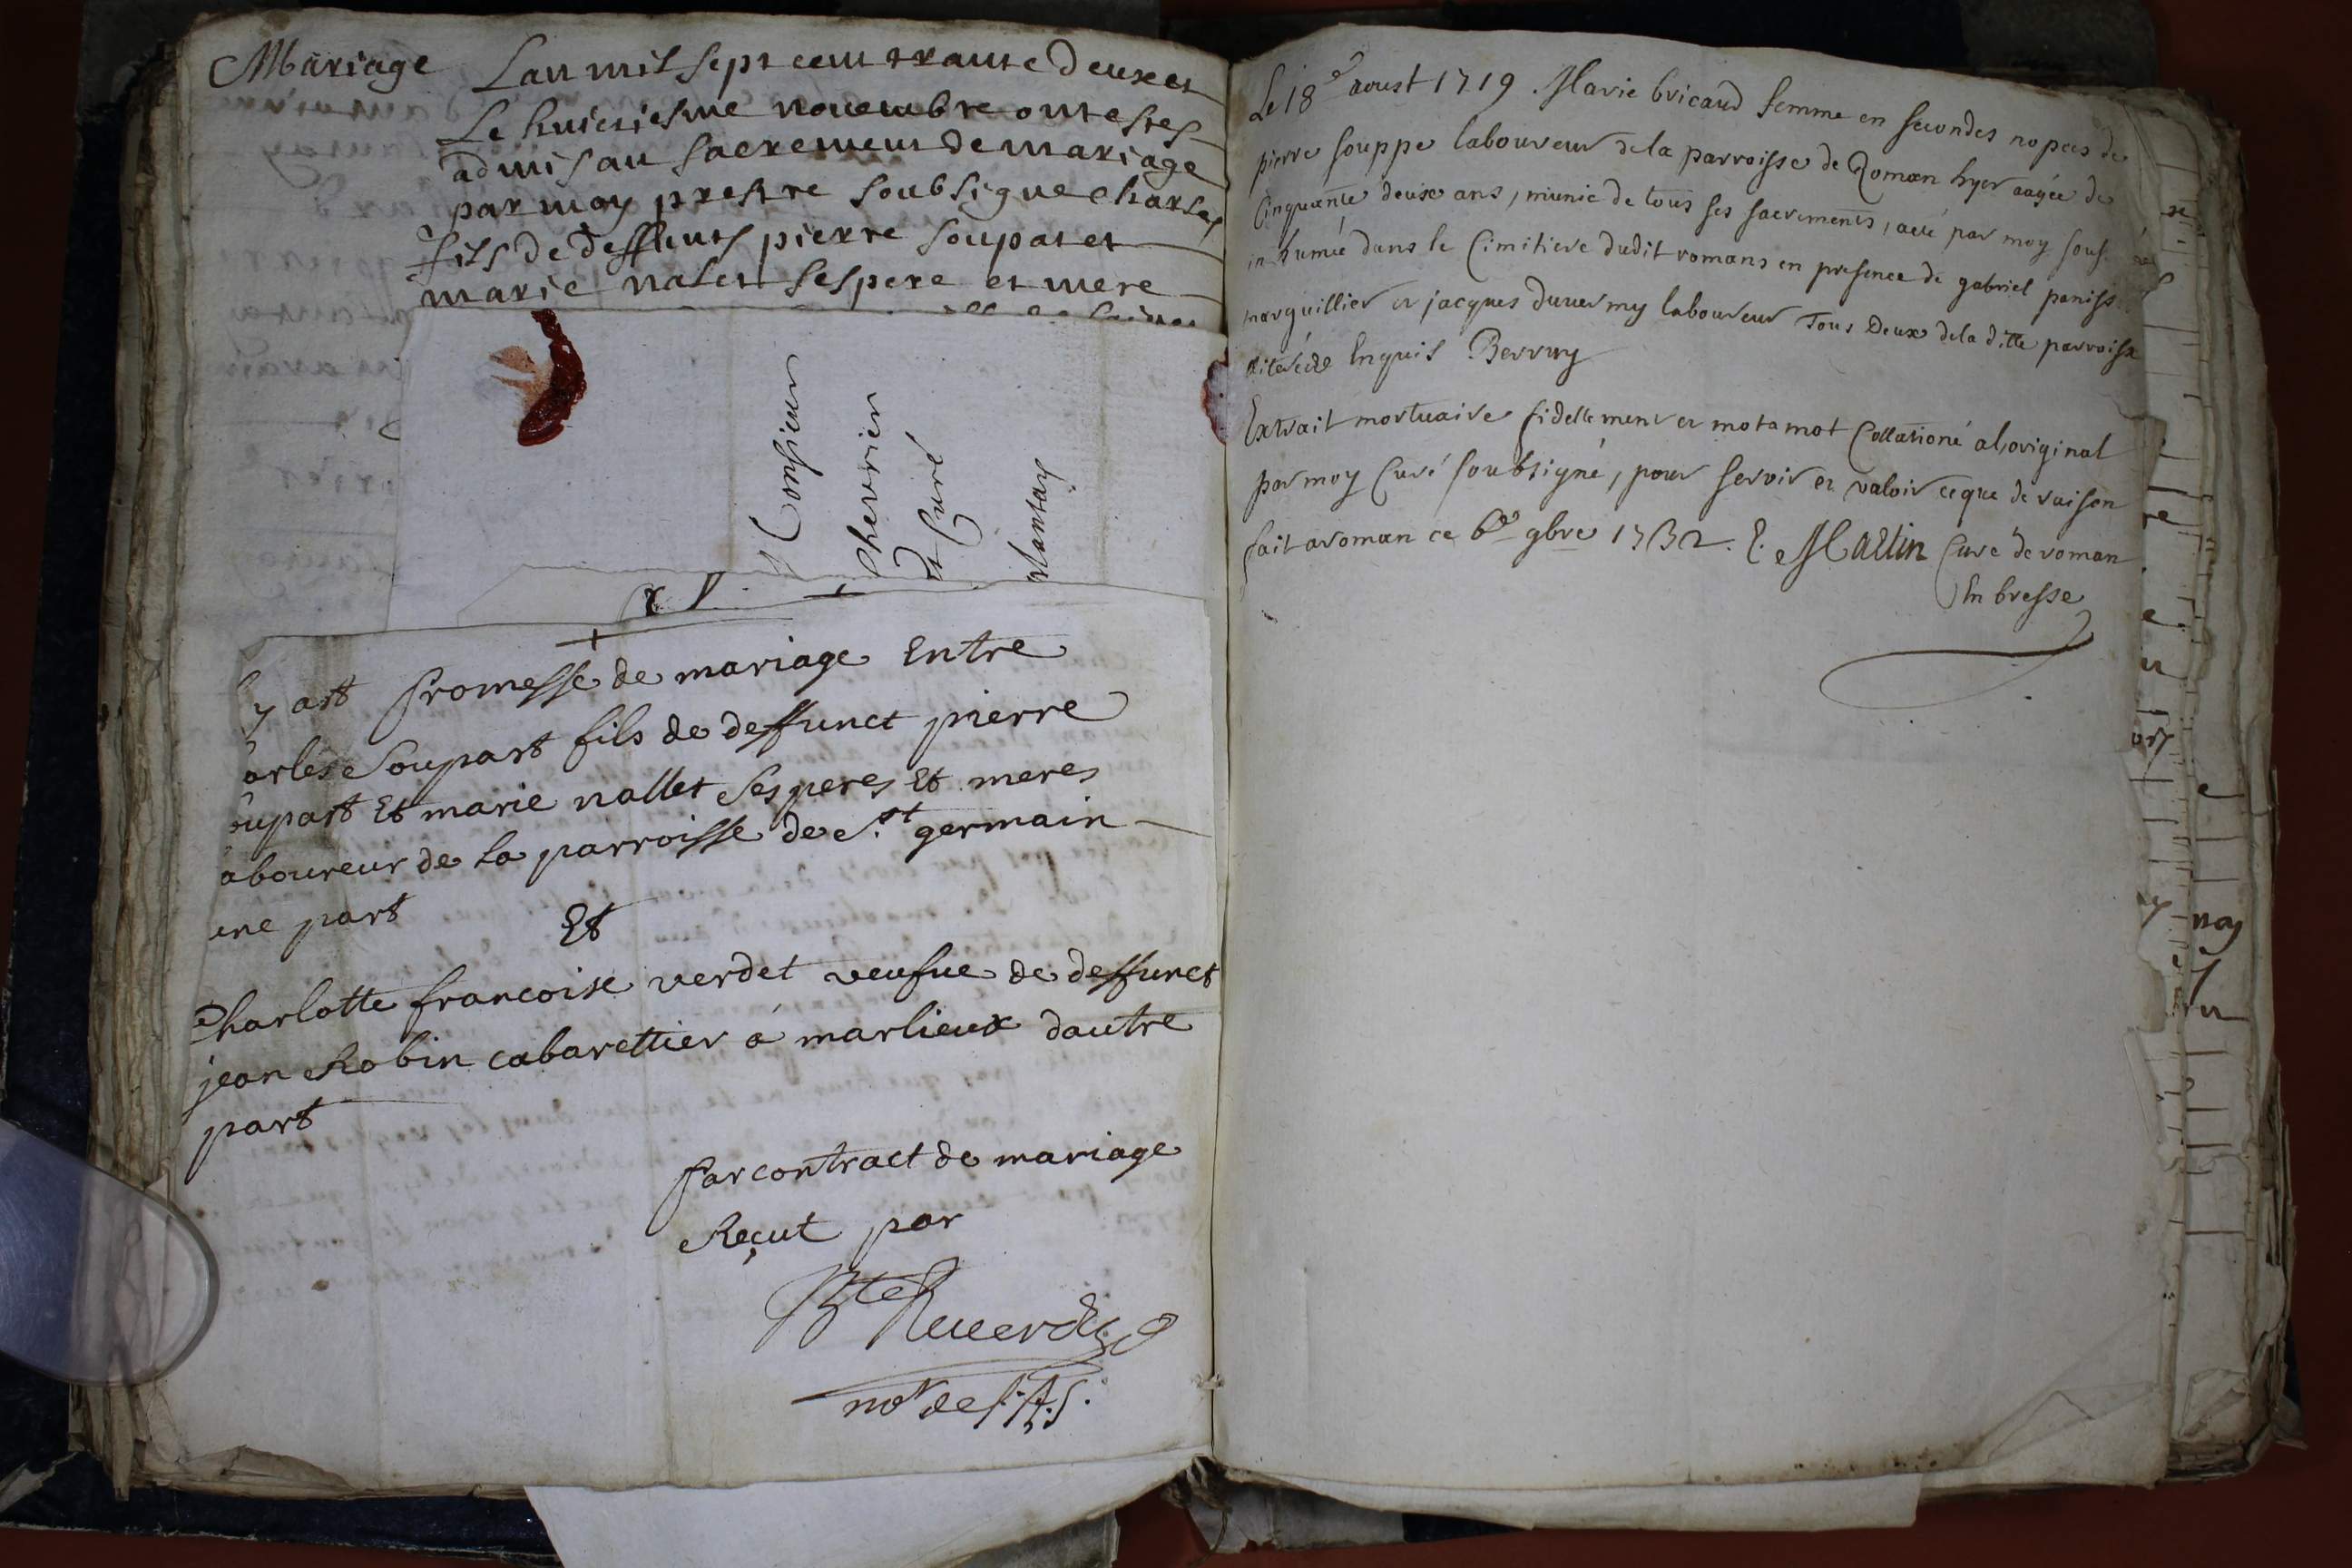 Mariage
Lan mil sept cent trante deux et
Le huictiesme nouembre ont estes
admis au sacrement de mariage
par moy prestre soubsigne charles
fils de deffunts pierre soupat et
marie nalet ses pere et mere
Monsieur
Chevrier
Curé
Mantay
y ast promesse de mariage Entre
arles Soupart fils de deffunct pierre
oupart Et marie nallet Ses peres Et meres
aboureur de la parroisse de St. germain
une part
Et
Charlotte francoise verdet veufue de deffunct
jean Robin cabarettier a marlieux dautre
part
par contract de mariage
Reçut par
Le 18e aoust 1719. Marie bricaud femme en secondes nopces de
pierre souppe laboureur de la parroisse de Roman hyer aagée de
Cinquante deux ans, munie de tous ses sacrements, a eté par moy sous
inhumée dans le Cimitiere dudit romans en presence de gabriel paniss
marguillier et jacques laboureur Tous Deux de la ditte parroisse
Enquis Berruy
Extrait mortuaire fidellement et mot a mot Collationé a l,original
par moy Curé soubsigné, pour servir et valoir ce que de raison
fait a roman ce 6e 9bre 1732. Martin Curé de roman
En bresse
noy